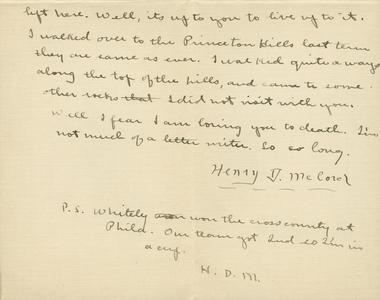 left here. Well, its up to you to live up to it.
I walked over to the Princeton Hills last term
they are same as ever. I walked quite a ways
along the top of the hills, and came to some
other rocks that I did not visit with you.
Well I fear I am boring you to death. I'm
not much of a letter writer. So so long.
Henry D.
P.S. Whitely won the crosscountry at
Phila. Our team got 2nd so I'm in
a cup.
H. D. M.